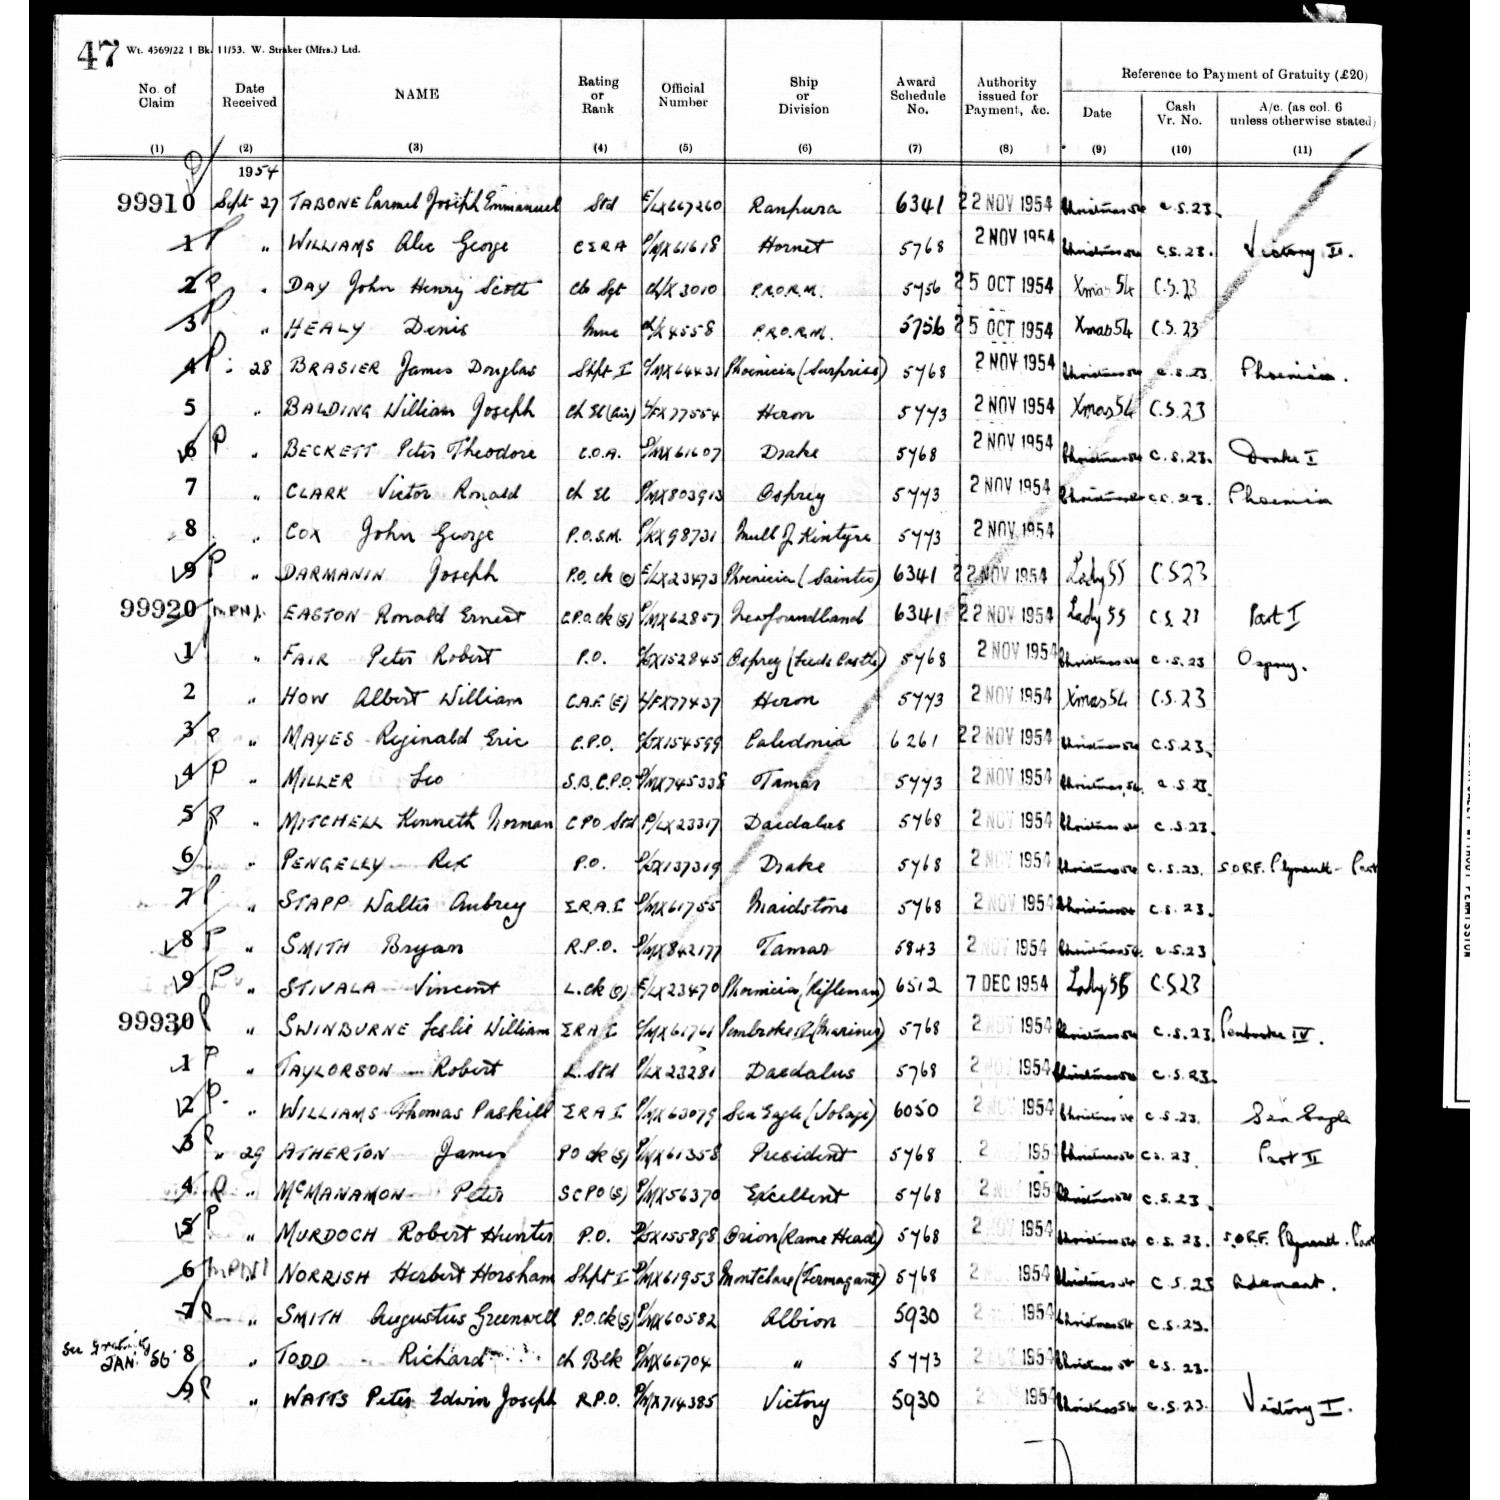 47 Wt. 4569/22 1 Bk. 11/53. W. Straker (Mfrs.) Ltd.
Reference to Payment of Gratuity (£20)
No. of Claim Date Received NAME Rating or Rank Official Number Ship or Division Award Schedule No. Authority issued for Payment, &c. Date Cash Vr. No. A/c. (as col. 6 unless otherwise stated)
(1) (2) (3) (4) (5) (6) (7) (8) (9) (10) (11)
1954
99910 Sept 27 TABONE Carmel Joseph Emmanuel Std E/LX667260 Ranpura 6341 22 NOV 1954 Christmas 54 C.S.23.
1 P " WILLIAMS Alec George CERA P/MX61618 Hornet 5768 2 NOV 1954 Christmas 54 C.S.23. Victory II.
2 P " DAY John Henry Scott Clr Sgt Ch/X3010 P.R.O.R.M. 5756 25 OCT 1954 Xmas 54 C.S.23
3 P " HEALY Denis Mne Ch/X4558 P.R.O.R.M. 5756 25 OCT 1954 Xmas 54 C.S.23
4 P " 28 BRASIER James Douglas Shpt I C/MX64431 Phoenicia (Surprise) 5768 2 NOV 1954 Christmas 54 C.S.23 Phoenicia.
5 " BALDING William Joseph Ch El (Air) L/FX77554 Heron 5773 2 NOV 1954 Xmas 54 C.S.23
6 P " BECKETT Peter Theodore C.O.A. P/MX61607 Drake 5768 2 NOV 1954 Christmas 54 C.S.23. Drake I
7 " CLARK Victor Ronald Ch El P/MX803913 Osprey 5773 2 NOV 1954 Christmas 54 C.S.23. Phoenicia
8 " COX John George P.O.S.M. P/KX98731 Mull of Kintyre 5773 2 NOV 1954
9 P " DARMANIN Joseph P.O. Ck (O) E/LX23473 Phoenicia (Saintes) 6341 22 NOV 1954 Lady 55 C.S23
99920 MPN1 " EASTON Ronald Ernest C.P.O. Ck (S) P/MX62857 Newfoundland 6341 22 NOV 1954 Lady 55 C.S. 23 Part I
1 " FAIR Peter Robert P.O. C/JX152845 Osprey (Leeds Castle) 5768 2 NOV 1954 Christmas 54 C.S.23 Osprey.
2 " HOW Albert William C.A.F. (E) L/FX77437 Heron 5773 2 NOV 1954 Xmas 54 C.S.23
3 P " MAYES Reginald Eric C.P.O. C/JX154599 Caledonia 6261 22 NOV 1954 Christmas 54 C.S.23.
4 P " MILLER Leo S.B.C.P.O. P/MX745338 Tamar 5773 2 NOV 1954 Christmas 54. C.S.23.
5 P " MITCHELL Kenneth Norman CPO Std P/LX23317 Daedalus 5768 2 NOV 1954 Christmas 54 C.S.23.
6 " PENGELLY Rex P.O. P/JX137319 Drake 5768 2 NOV 1954 Christmas 54 C.S.23. S.O.R.F. Plymouth - Part
7 P " STAPP Walter Aubrey E.R.A.I P/MX61755 Maidstone 5768 2 NOV 1954 Christmas 54 C.S.23.
8 P " SMITH Bryan R.P.O. P/MX842177 Tamar 5843 2 NOV 1954 Christmas 54. C.S.23
9 P " STIVALA Vincent L.Ck (O) E/LX23470 Phoenicia (Rifleman) 6512 7 DEC 1954 Lady 55 C.S23
99930 P " SWINBURNE Leslie William ERA I C/MX61761 Pembroke IV (Mariner) 5768 2 NOV 1954 Christmas 54 C.S.23. Pembroke IV.
1 P " TAYLORSON Robert L. Std P/LX23281 Daedalus 5768 2 NOV 1954 Christmas 54 C.S.23.
2 P. " WILLIAMS Thomas Paskill ERA I P/MX63079 Sea Eagle (Volage) 6050 2 NOV 1954 Christmas 54 C.S.23. Sea Eagle
3 P " 29 ATHERTON James PO Ck (S) P/MX61358 President 5768 2 195 Christmas 54 C.S. 23. Part II
4 P " McMANAMON Peter SCPO (S) P/MX56370 Excellent 5768 2 NOV 195 Christmas 54 C.S.23.
5 P " MURDOCH Robert Hunter P.O. P/JX155898 Orion (Rame Head) 5768 2 NOV 1954 Christmas 54 C.S. 23. S.O.R.F. Plymouth. Part
6 MPN1 " NORRISH Herbert Horsham Shpt I P/MX61953 Montclare (Termagant) 5768 2 1954 Christmas 54 C.S.23 Adamant.
7 P " SMITH Augustus Greenwell P.O.Ck (S) P/MX60582 Albion 5930 2 1954 Christmas 54 C.S.23.
See Gratuity JAN. 56. 8 " TODD Richard Ch Belk P/MX61704 " 5773 2 1954 Christmas 54 C.S. 23.
9 P " WATTS Peter Edwin Joseph R.P.O. P/MX714385 Victory 5930 2 1954 Christmas 54 C.S.23. Victory I.